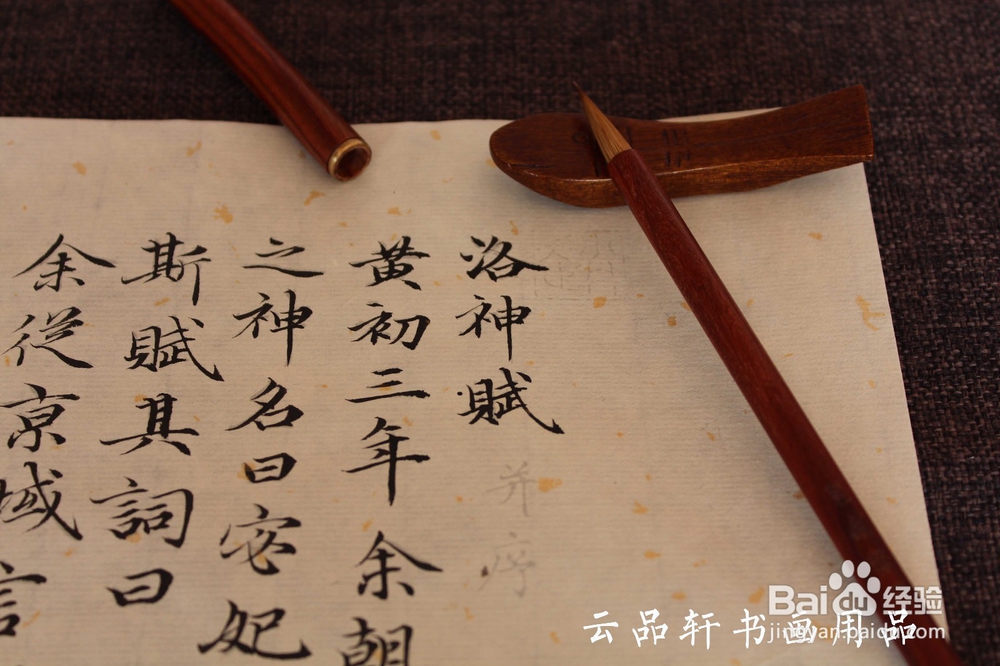 洛神賦
并序
黄初三年余朝
之神名曰宓妃
斯賦其詞曰
余從京域言
云品轩书画用品
Baidu经验
jingyan.baidu.com